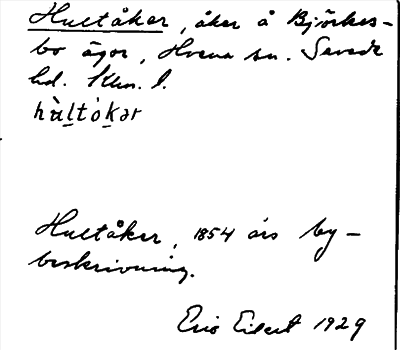 Hultåker, åker å Björkes-
bo ägor, Hvena sn. Sevede
hd. Klm. l.
hùltò̱kər
Hultåker, 1854 års by-
beskrivning.
Eric Eilert 1929